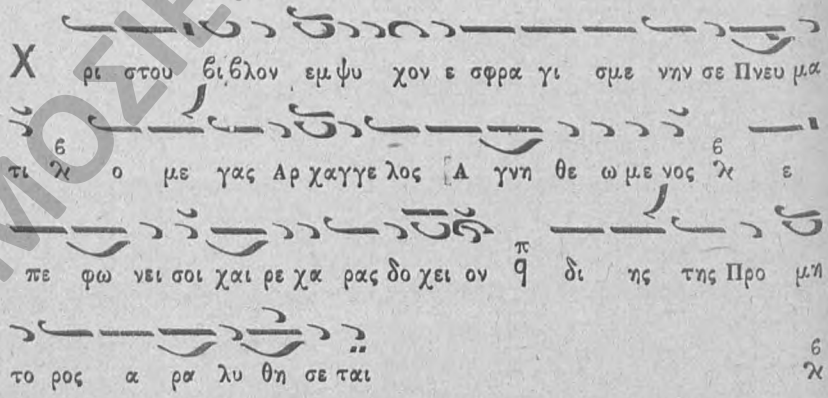 Χ ρι στου βιβλον εμ ψυ χον ε σφρα γι σμε νην σε Πνευ μα
τι ο με γας Αρ χαγγε λος Α γνη θε ω με νος ε
πε φω νει σοι χαι ρε χα ρας δο χει ον δι ης της Προ μη
το ρος α ρα λυ θη σε ται